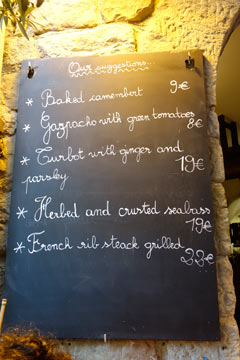 Our suggestions...
* Baked camembert 9€
* Gazpacho with green tomatoes 8€
* Turbot with ginger and
parsley 19€
* Herbed and crusted seabass
19€
* French rib steack grilled
22€